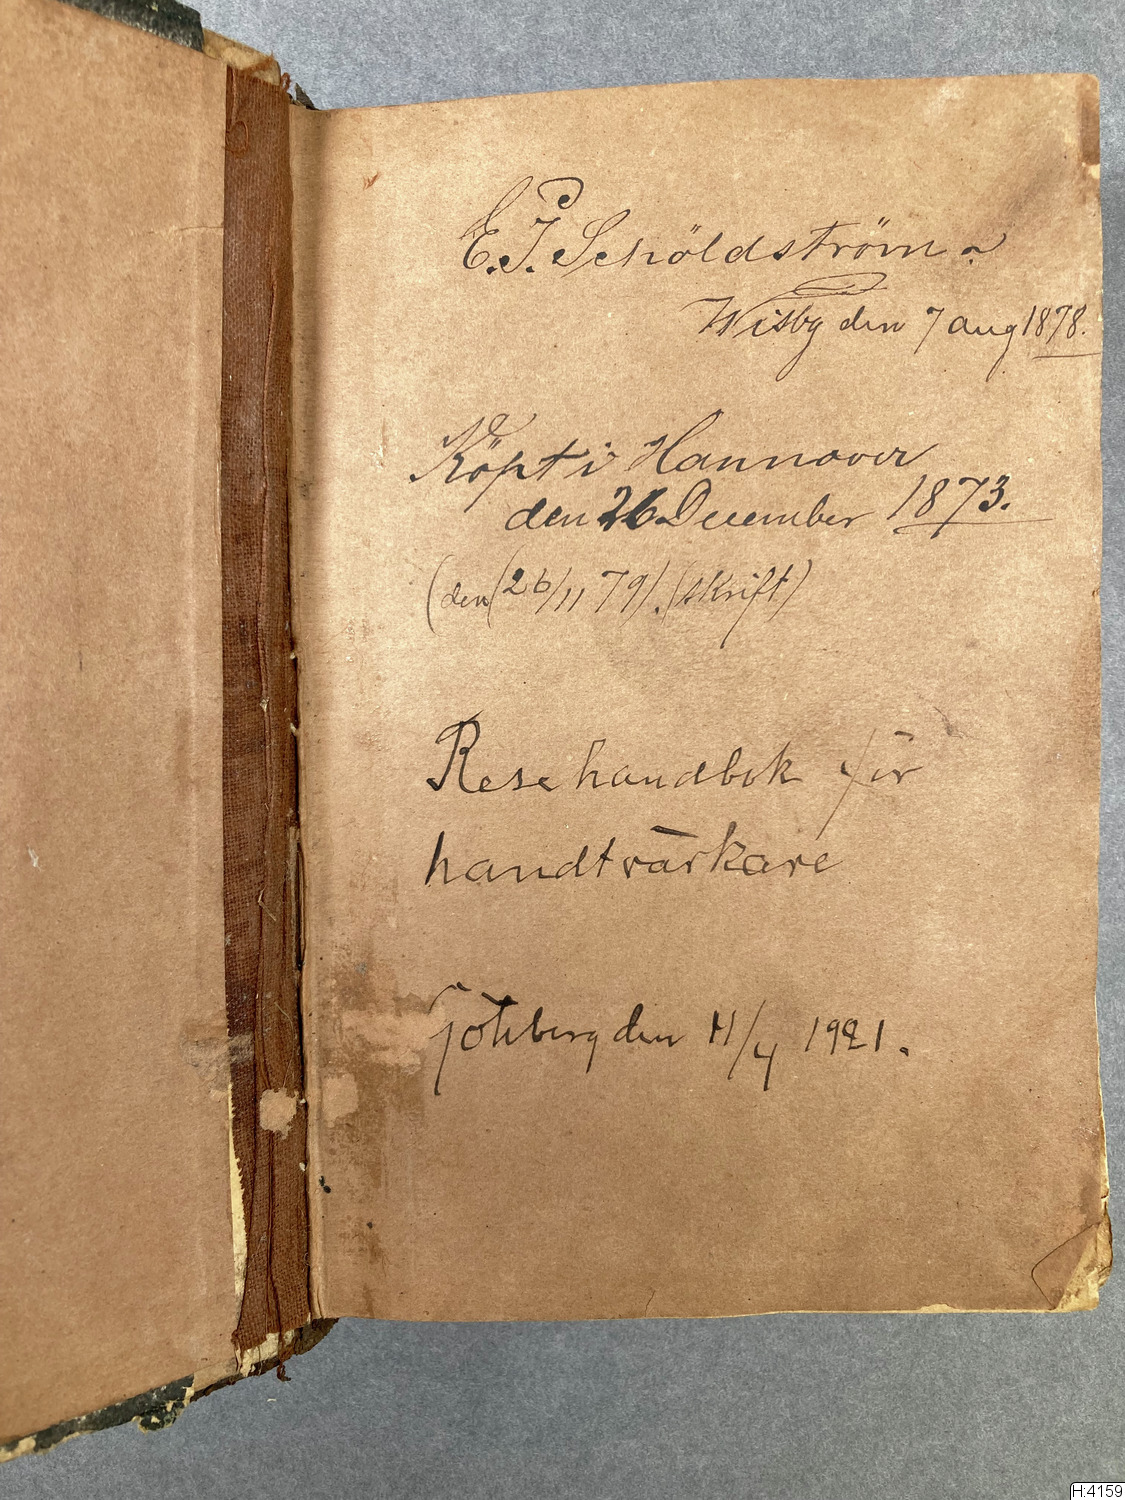 E. J. Schöldström.
Wisby den 7 aug 1878.
Köpt i Hannover
den 26 December 1873.
(den (26/11 79). (skrift)
Resehandbok för
handtvärkare
Göteberg den 11/4 1921.
H:4159